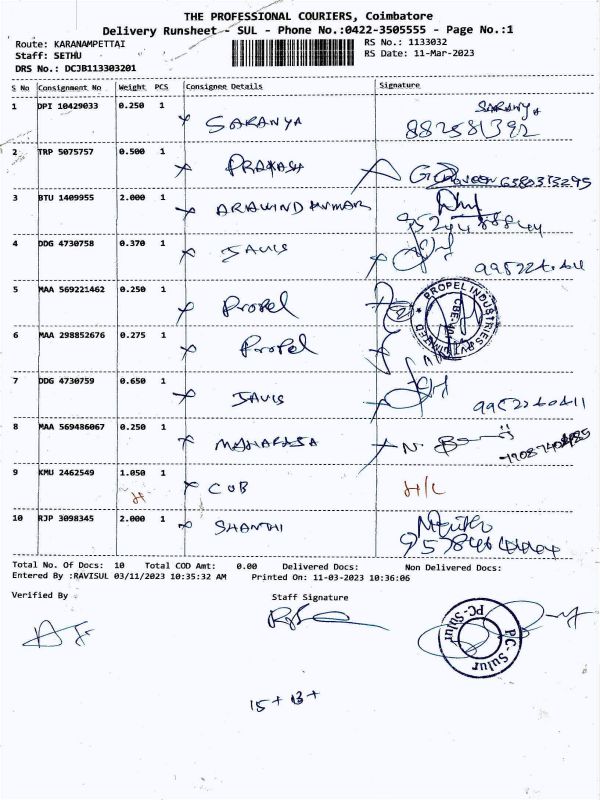 THE PROFESSIONAL COURIERS, Coimbatore
Delivery Runsheet - SUL - Phone No.:0422-3505555 - Page No.:1
Route: KARANAMPETTAI
RS No.: 1133032
Staff: SETHU
RS Date: 11-Mar-2023
DRS No.: DCJB113303201
S No Consignment No Weight PCS Consignee Details Signature
1 DPI 10429033 0.250 1 SARANYA SARANYA
882581392
2 TRP 5075757 0.500 1 PRAKASH
3 BTU 1409955 2.000 1 ARAWIND KUMAR
4 DDG 4730758 0.370 1 JAVIS
5 MAA 569221462 0.250 1 Propel
PROPEL INDUSTRIES PVT LIMITED
6 MAA 298852676 0.275 1 Propel
7 DDG 4730759 0.650 1 JAVIS
8 MAA 569486067 0.250 1 MAHARAJA
9 KMU 2462549 1.050 1 CUB H/L
H
10 RJP 3098345 2.000 1 SHANTHI
Total No. Of Docs: 10 Total COD Amt: 0.00 Delivered Docs: Non Delivered Docs:
Entered By :RAVISUL 03/11/2023 10:35:32 AM Printed On: 11-03-2023 10:36:06
Verified By Staff Signature
PC-Sulur PC-Sulur
15 + 13 +